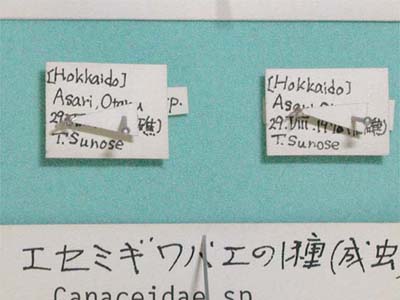 [Hokkaido]
Asari, Ota
29.
T. Sunose
[Hokkaido]
29. VIII.
T. Sunose
エセミギワバエの1種(成虫
Canaceidae sp